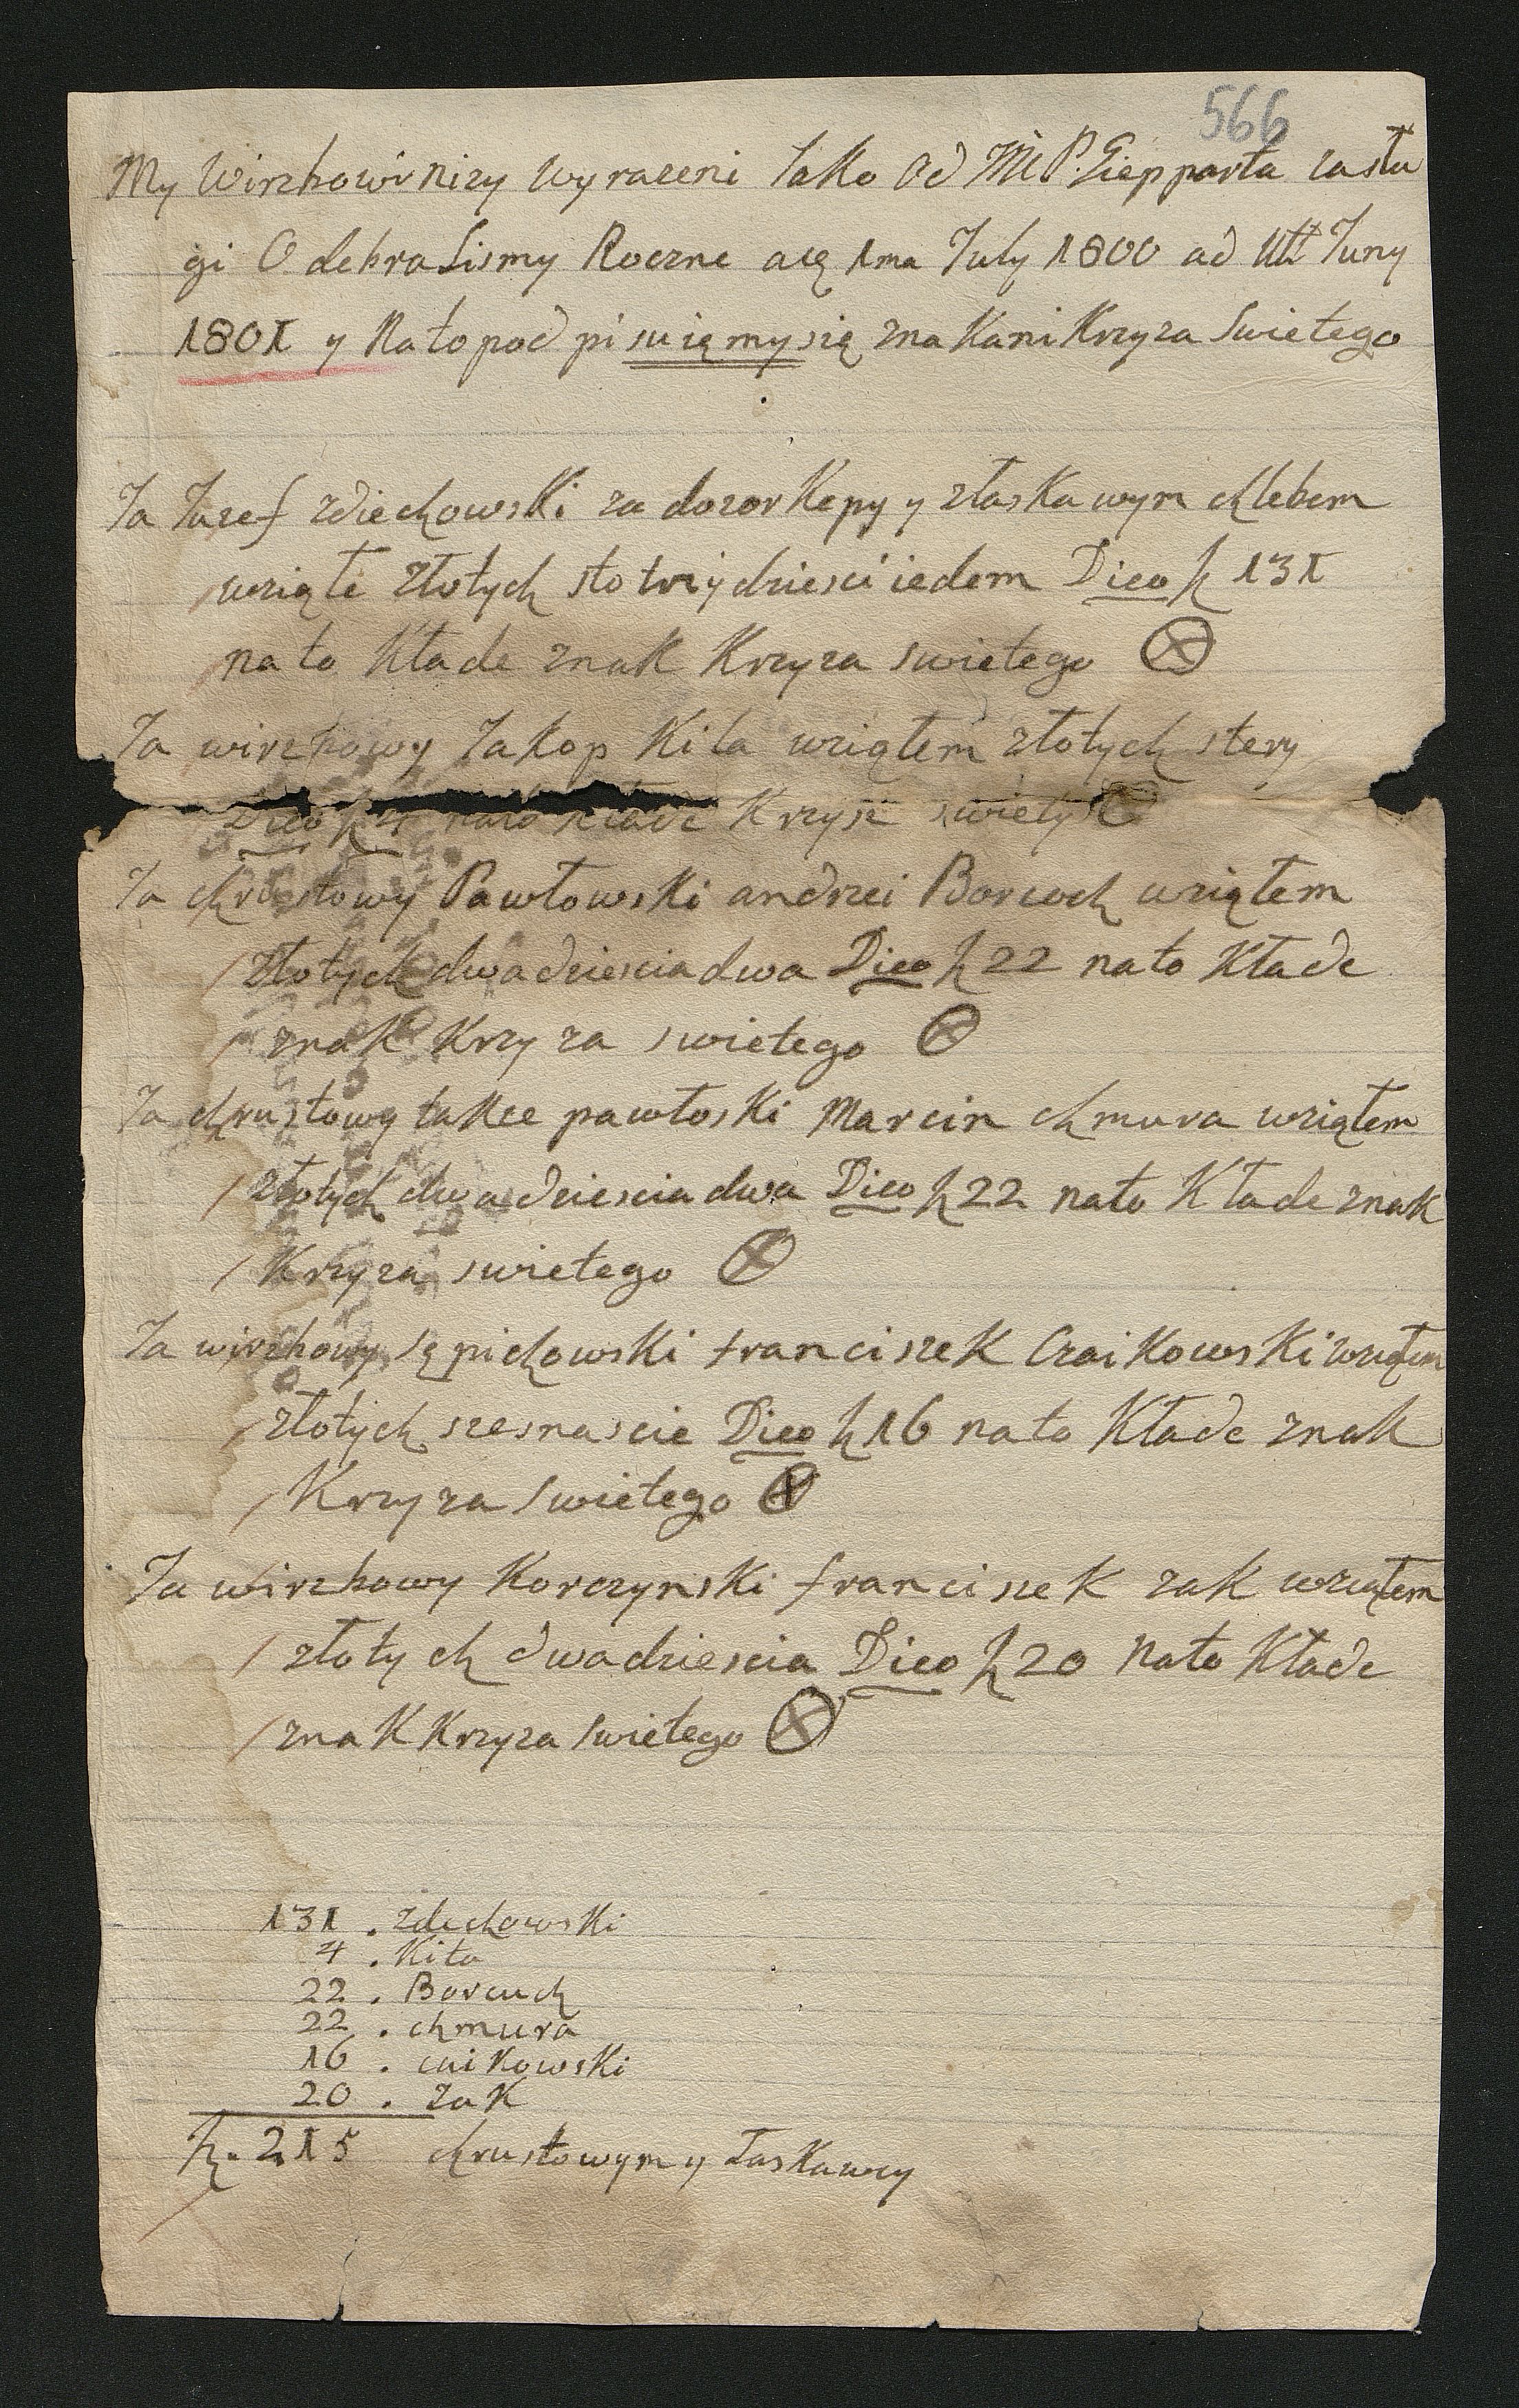 566
My Wirzhowi nizy wyrazeni Jako Od P. Giepparta zasłu
gi Odebralismy Roczne a 1ma July 1800 ad Ult Juny
1801 y Na to pod pi suię my się zna Kami Krzyza Swietego
Ja Jozef zdiechowski za dozor Kepy y z łaska wym chlebem
wziąłe złotych sto trzydziesci iedem Dico 131
na to Kłade znak Krzyza swietego
Ja wirzhowy Jakop Kita wziąłem złotych stery
Dico 4 nato Kłade Krzyz swiety
Ja chrustowy Pawłowski andrzei Borcuch wziąłem
złotych dwadziescia dwa Dico 22 na to Kłade
znak Krzyza swietego
Ja chrustowy takze pawłoski Marcin chmura wziąłem
złotych dwadziescia dwa Dico 22 nato Kłade znak
Krzyza swietego
Ja wirzhowy sępichowski franciszek Czaikowski wziąłem
złotych szesnascie Dico 16 nato Kłade znak
Krzyza Swietego
Ja wirzhowy Korczynski franciszek zak wziąłem
złotych dwadziescia Dico 20 Nato Kłade
znak Krzyza Swietego
131 . zdechowski
4 . Kita
22 . Borcuch
22 . chmura
16 . caikowski
20 . zak
215 chrustowym y łaskawzy